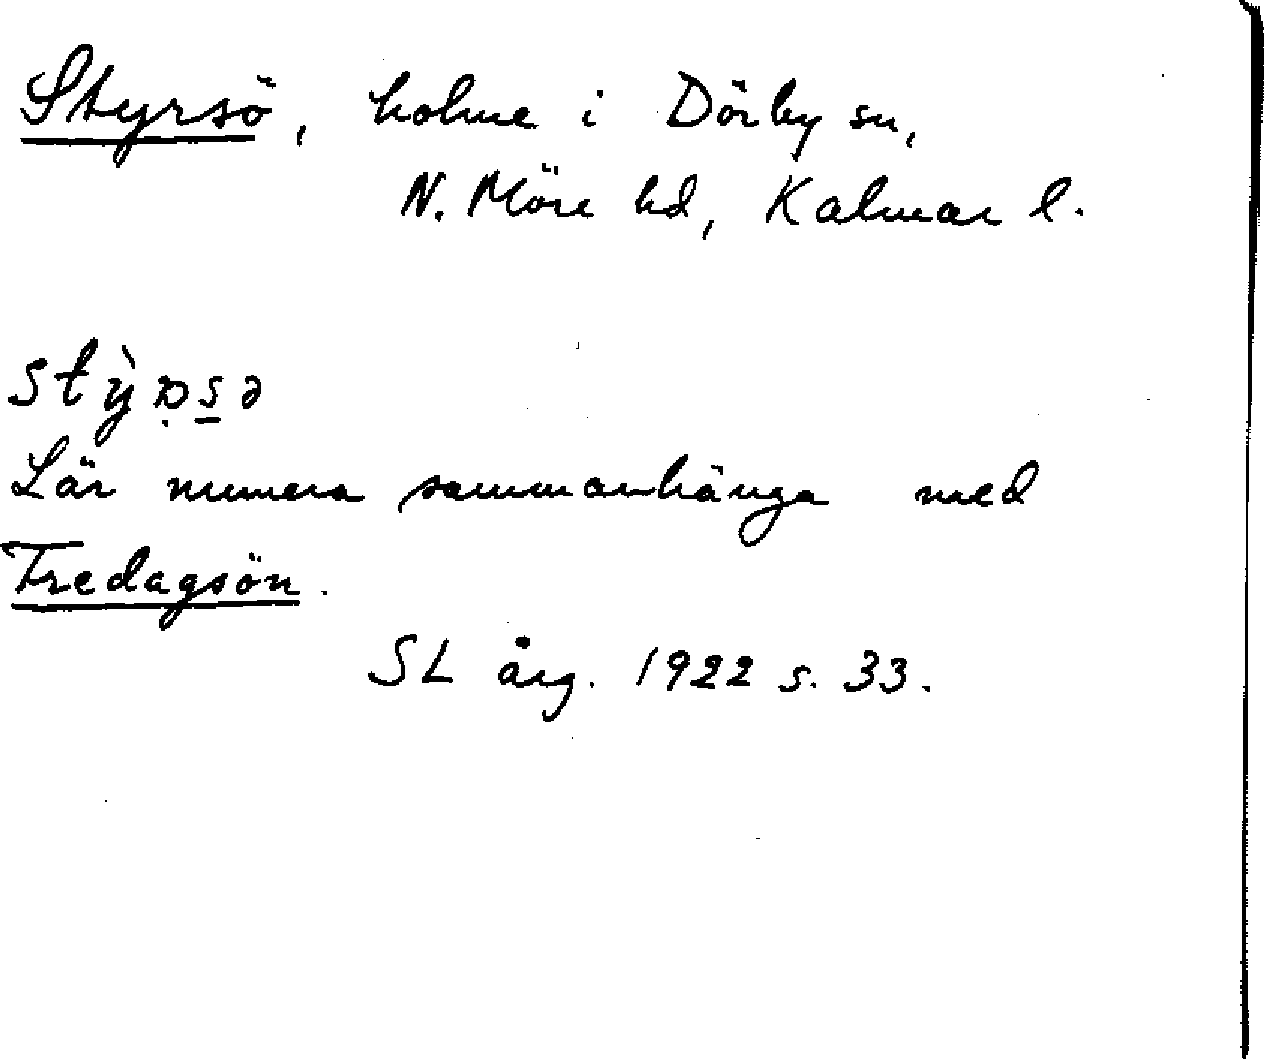 Styrsö, holme i Dörby sn,
N. Möre hd, Kalmar l.
Lär numera sammanhänga med
Fredagsön.
SL årg. 1922 s. 33.